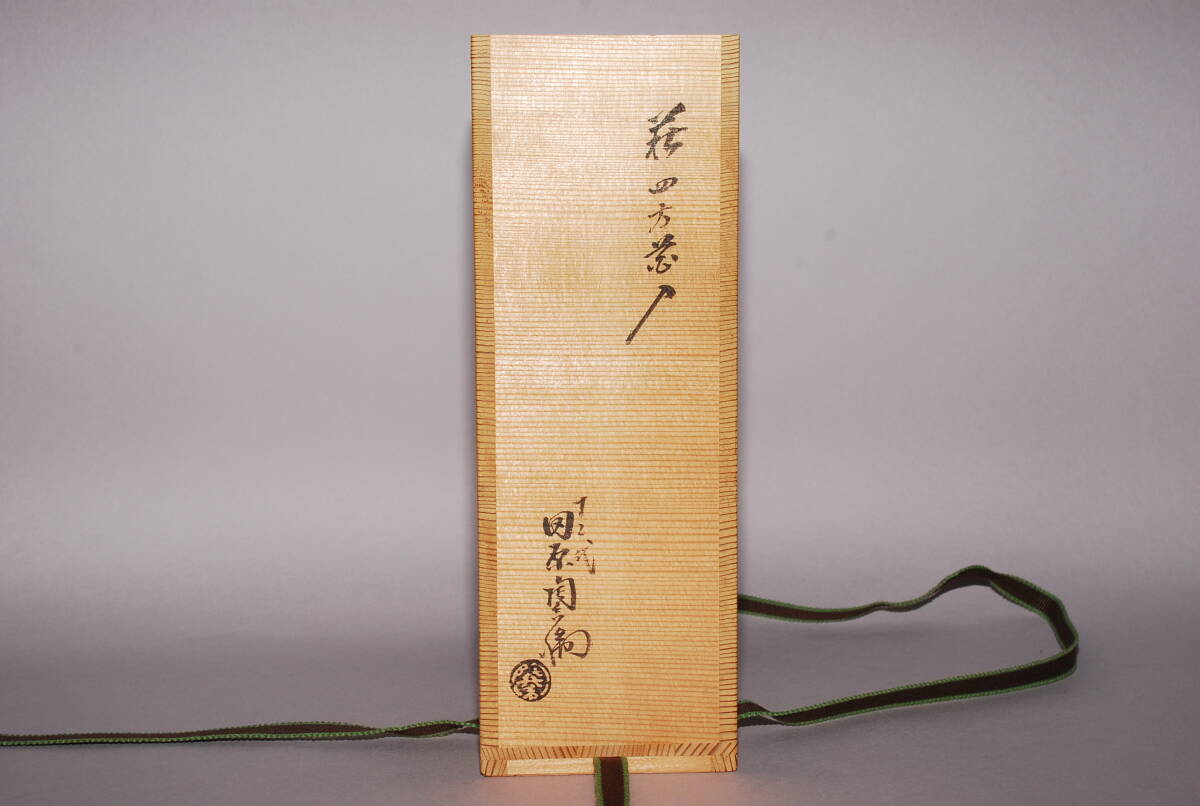 萩四方花入
十二代
田原陶兵衛